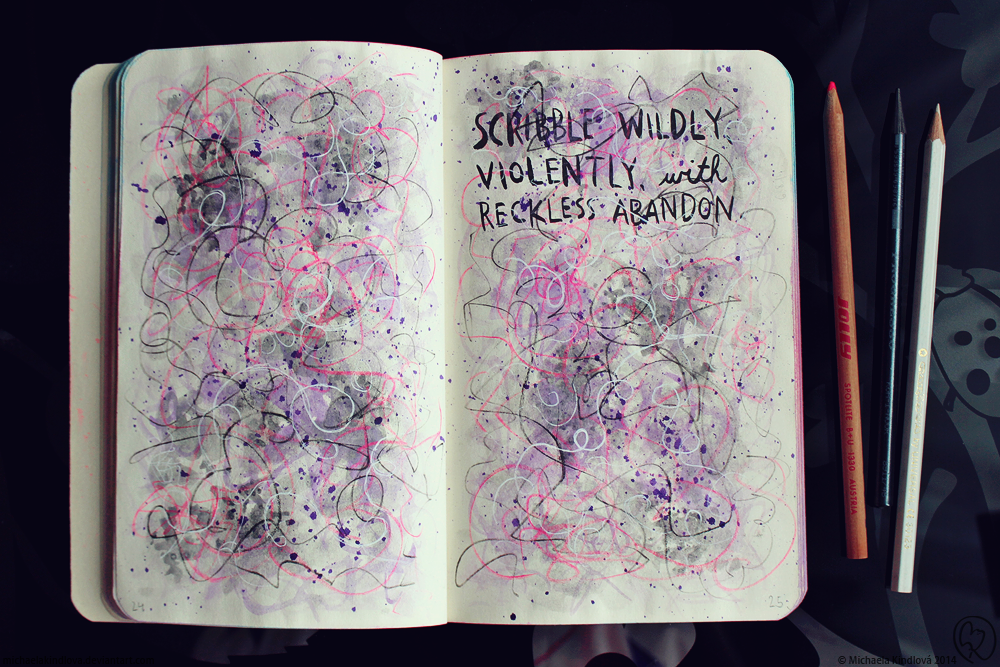 SCRIBBLE WILDLY,
VIOLENTLY, with
RECKLESS ABANDON
24.
25.
JOLLY SPOTLITE B+U 1330 AUSTRIA
© Michaela Kindlová 2014